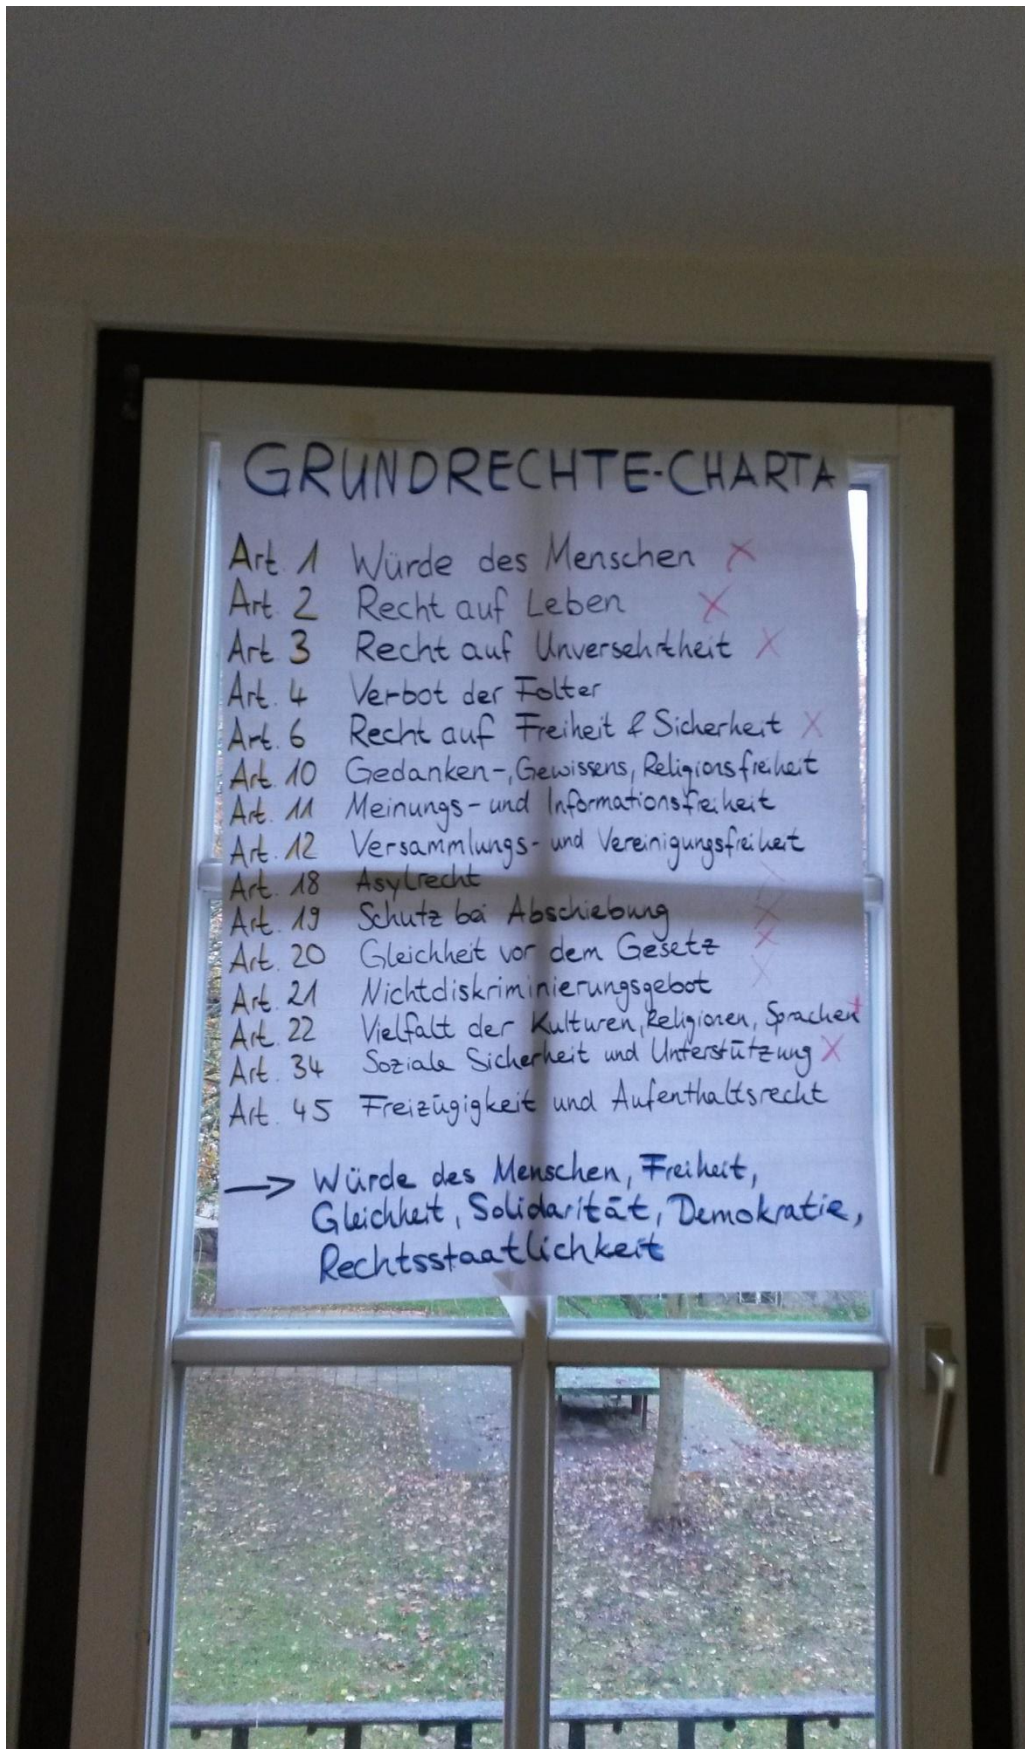 GRUNDRECHTE-CHARTA
Art. 1 Würde des Menschen X
Art. 2 Recht auf Leben X
Art. 3 Recht auf Unversehrtheit X
Art. 4 Verbot der Folter
Art. 6 Recht auf Freiheit & Sicherheit X
Art. 10 Gedanken-, Gewissens, Religionsfreiheit
Art. 11 Meinungs- und Informationsfreiheit
Art. 12 Versammlungs- und Vereinigungsfreiheit
Art. 18 Asylrecht X
Art. 19 Schutz bei Abschiebung X
Art. 20 Gleichheit vor dem Gesetz X
Art. 21 Nichtdiskriminierungsgebot X
Art. 22 Vielfalt der Kulturen, Religionen, Sprachen X
Art. 34 Soziale Sicherheit und Unterstützung X
Art. 45 Freizügigkeit und Aufenthaltsrecht
→ Würde des Menschen, Freiheit,
Gleichheit, Solidarität, Demokratie,
Rechtsstaatlichkeit